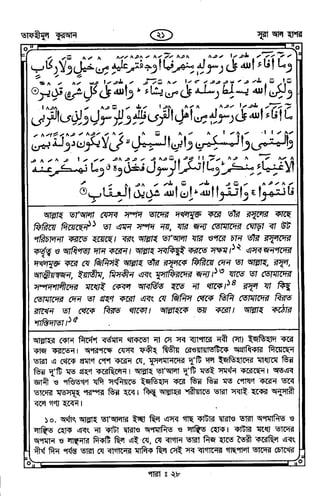 তাফহীমুল কুরআন
২১
সূরা আল হাশর
وَمَآ أَفَآءَ اللّٰهُ عَلٰى رَسُوْلِهٖ مِنْهُمْ فَمَآ أَوْجَفْتُمْ عَلَيْهِ مِنْ خَيْلٍ وَّلَا رِكَابٍ
وَّلٰكِنَّ اللّٰهَ يُسَلِّطُ رُسُلَهٗ عَلٰى مَنْ يَّشَآءُ ۚ وَاللّٰهُ عَلٰى كُلِّ شَيْءٍ قَدِيْرٌ ۝
مَآ أَفَآءَ اللّٰهُ عَلٰى رَسُوْلِهٖ مِنْ أَهْلِ الْقُرٰى فَلِلّٰهِ وَلِلرَّسُوْلِ وَلِذِى الْقُرْبٰى
وَالْيَتٰمٰى وَالْمَسٰكِيْنِ وَابْنِ السَّبِيْلِ ۙ كَيْ لَا يَكُوْنَ دُوْلَةً ۢ بَيْنَ
الْأَغْنِيَآءِ مِنْكُمْ ۚ وَمَآ اٰتٰىكُمُ الرَّسُوْلُ فَخُذُوْهُ ۚ وَمَا نَهٰىكُمْ عَنْهُ
فَانْتَهُوْا ۚ وَاتَّقُوا اللّٰهَ ۖ إِنَّ اللّٰهَ شَدِيْدُ الْعِقَابِ ۝
আল্লাহ তা'আলা যেসব সম্পদ তাদের দখলমুক্ত করে তাঁর রসূলের কাছে
ফিরিয়ে দিয়েছেন১১ তা এমন সম্পদ নয়, যার জন্য তোমাদের ঘোড়া বা উট
পরিচালনা করতে হয়েছে। বরং আল্লাহ তা'আলা যার ওপরে চান তাঁর রসূলদের
কর্তৃত্ব ও আধিপত্য দান করেন। আল্লাহ সবকিছুই করতে সক্ষম।১২ এসব জনপদের
দখলমুক্ত করে যে জিনিসই আল্লাহ তাঁর রসূলকে ফিরিয়ে দেন তা আল্লাহ, রসূল,
আত্মীয়স্বজন, ইয়াতীম, মিসকীন এবং মুসাফিরদের জন্য।১৩ যাতে তা তোমাদের
সম্পদশালীদের মধ্যেই কেবল আবর্তিত হতে না থাকে।১৪ রসূল যা কিছু
তোমাদের দেন তা গ্রহণ করো এবং যে জিনিস থেকে তিনি তোমাদের বিরত
রাখেন তা থেকে বিরত থাকো। আল্লাহকে ভয় করো। আল্লাহ কঠোর
শাস্তিদাতা।১৫
আল্লাহর কোন নির্দেশ বর্তমান থাকতো না সে সব ব্যাপারে নবী (সা) ইজতিহাদ করে
কাজ করতেন। অপরপক্ষে যেসব ফকীহ দ্বিতীয় রেওয়ায়াতটিকে অগ্রাধিকার দিয়েছেন
তারা এ থেকে প্রমাণ পেশ করেন যে, মুসলমানদের দু'টি দল ইজতিহাদের মাধ্যমে ভিন্ন
ভিন্ন দু'টি মত গ্রহণ করেছিলেন। আল্লাহ তা'আলা দু'টি মতই সমর্থন করেছেন। অতএব
জ্ঞানী ও পণ্ডিতগণ যদি সৎনিয়তে ইজতিহাদ করে ভিন্ন ভিন্ন মত পোষণ করেন তবে
তাদের মতসমূহ পরস্পর ভিন্ন হবে। কিন্তু আল্লাহর শরীয়াতে তারা সবাই হকের অনুসারী
বলে গণ্য হবেন।
১০. অর্থাৎ আল্লাহ তা'আলার ইচ্ছা ছিল এসব গাছ কাটার দ্বারাও তারা অপমানিত ও
লাঞ্ছিত হোক এবং না কাটা দ্বারাও অপমানিত ও লাঞ্ছিত হোক। কাটার মধ্যে তাদের
অপমান ও লাঞ্ছনার দিকটি ছিল এই যে, যে বাগান তারা নিজ হাতে তৈরী করেছিল এবং
দীর্ঘ দিন পর্যন্ত তারা যে বাগানের মালিক ছিল সেই সব বাগানের গাছপালা তাদের চোখের
পারা : ২৮